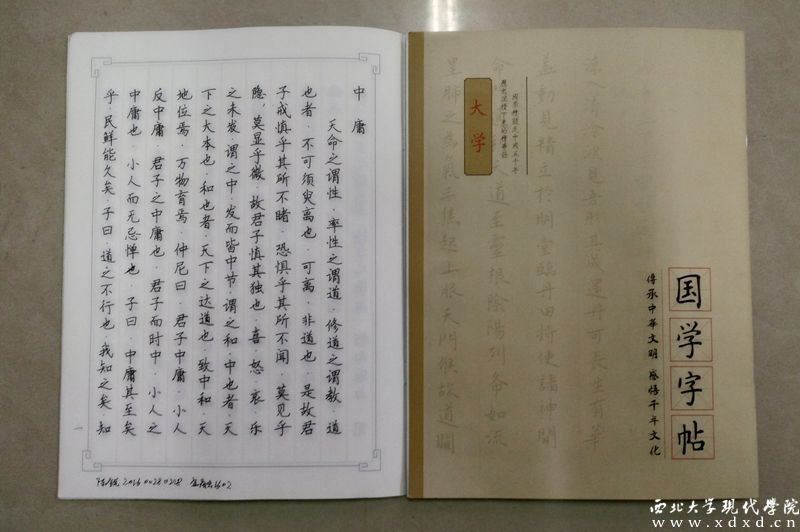 中庸
天命之谓性·率性之谓道·修道之谓教·道
也者·不可须臾离也·可离·非道也·是故君
子戒慎乎其所不睹·恐惧乎其所不闻·莫见乎
隐·莫显乎微·故君子慎其独也·喜·怒·哀·乐
之未发·谓之中·发而皆中节·谓之和·中也者·天
下之大本也·和也者·天下之达道也·致中和·天
地位焉·万物育焉·仲尼曰·君子中庸·小人
反中庸·君子之中庸也·君子而时中·小人之
中庸也·小人而无忌惮也·子曰·中庸其至矣
乎·民鲜能久矣·子曰·道之不行也·我知之矣·知
一
大学
国学字帖
傳承中華文明 感悟千年文化
道至靈根陰陽列布如流
之為氣三焦起上服天門候故道闚
西北大学现代学院
www.xdxd.cn